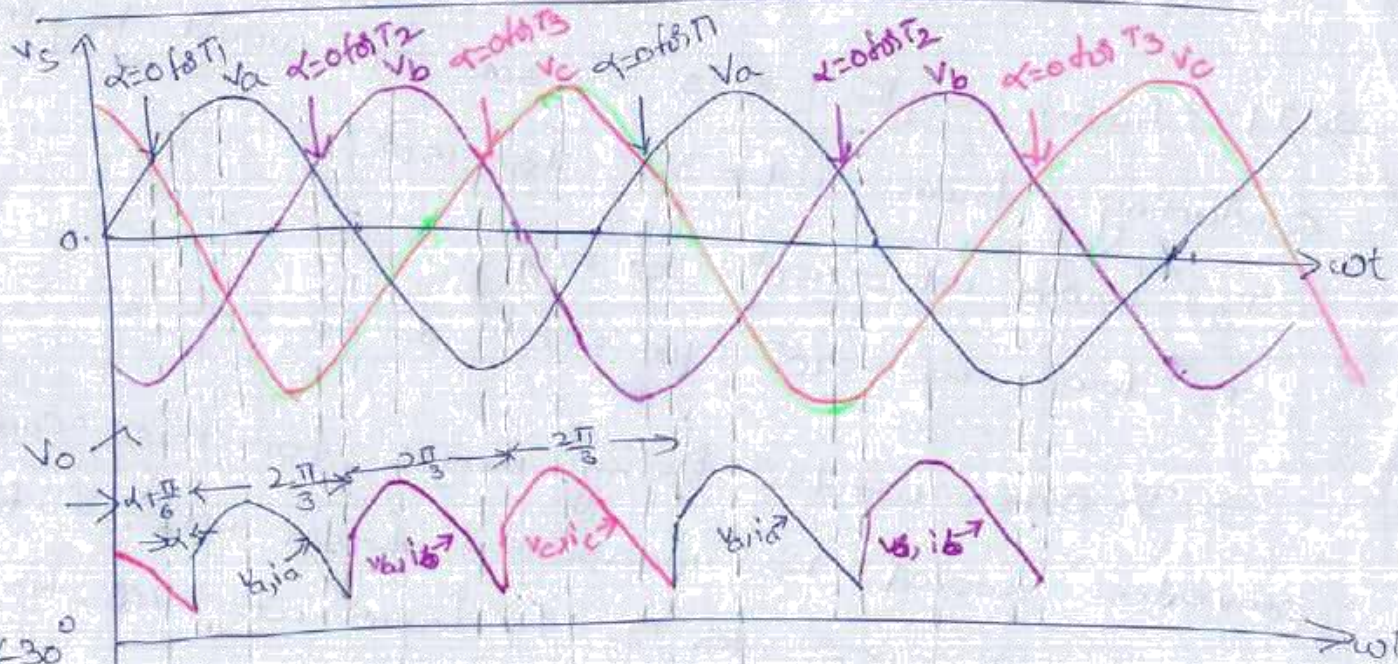 Vs
α=0 for T1 Va α=0 for T2 Vb α=0 for T3 Vc α=0 for T1 Va α=0 for T2 Vb α=0 for T3 Vc
0
ωt
Vo
α+π/6 2π/3 2π/3 2π/3
α
Va, ia ib Vc, ic Va, ia ib
0
<30°
ωt